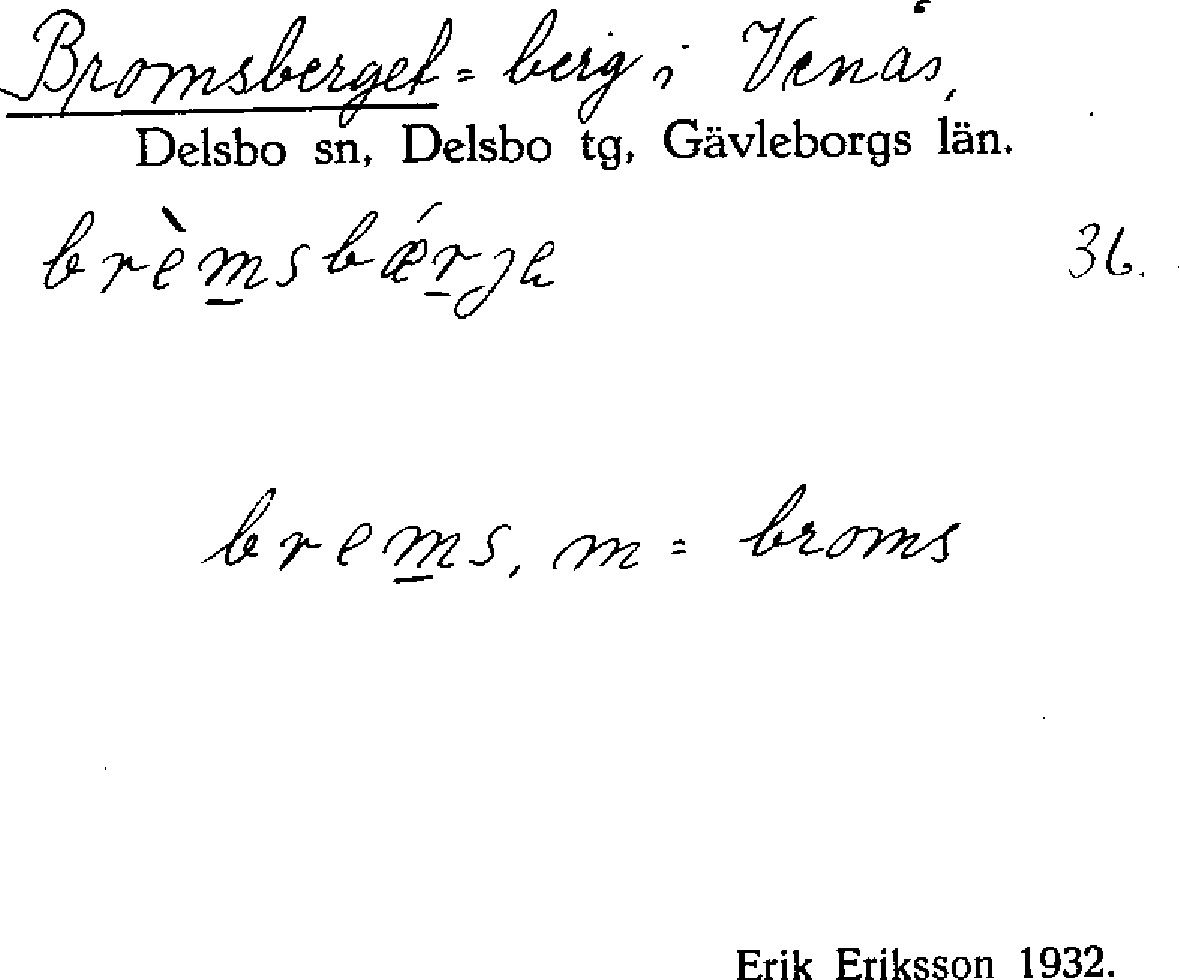 Bromsberget = berg i Venås,
Delsbo sn, Delsbo tg, Gävleborgs län.
brèmsbǽrje 36.
brems, m = broms
Erik Eriksson 1932.